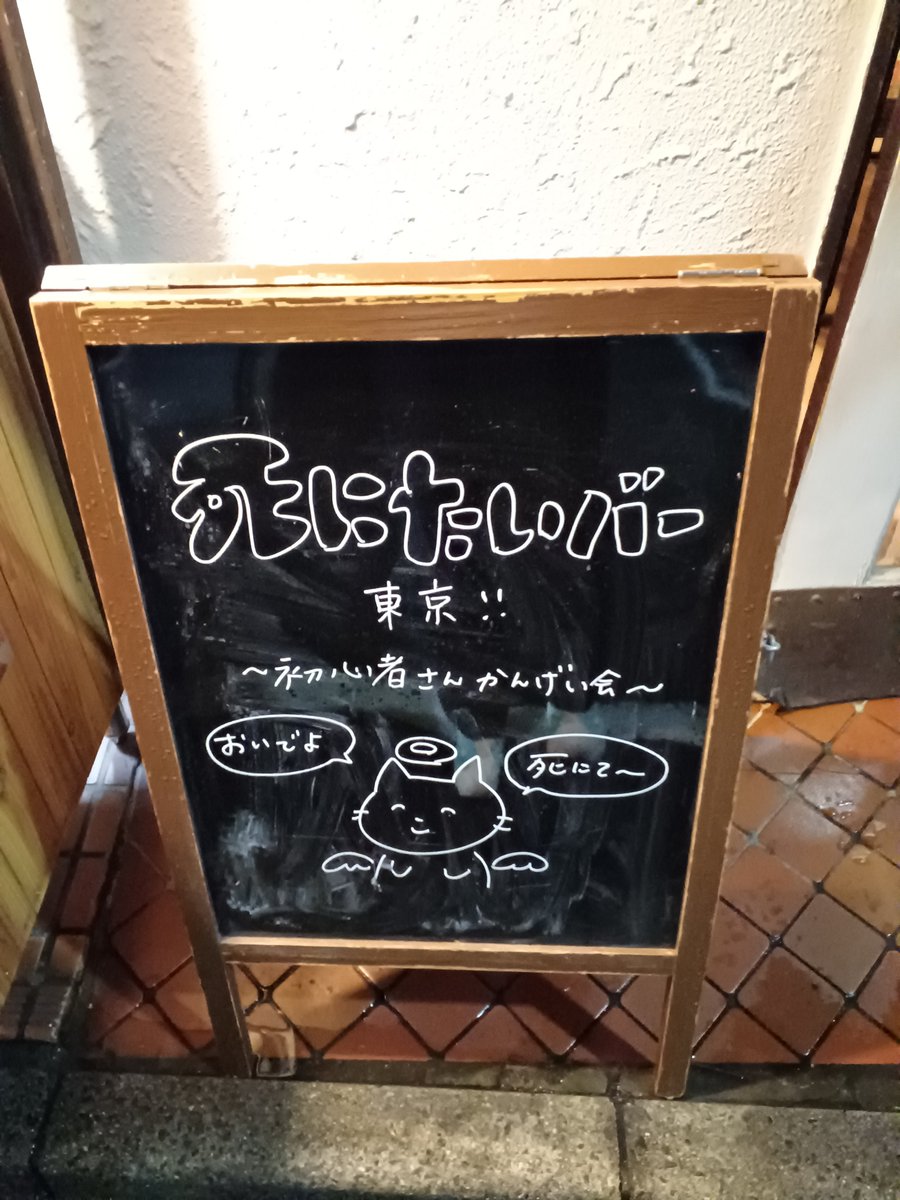 死にたいバー
東京!!
〜初心者さんかんげい会〜
おいでよ
死にて〜